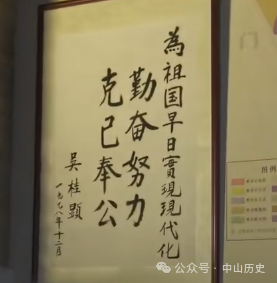 為祖国早日實現現代化
勤奮努力
克己奉公
吴桂顯
一九九八年十二月
图例
公众号·中山历史